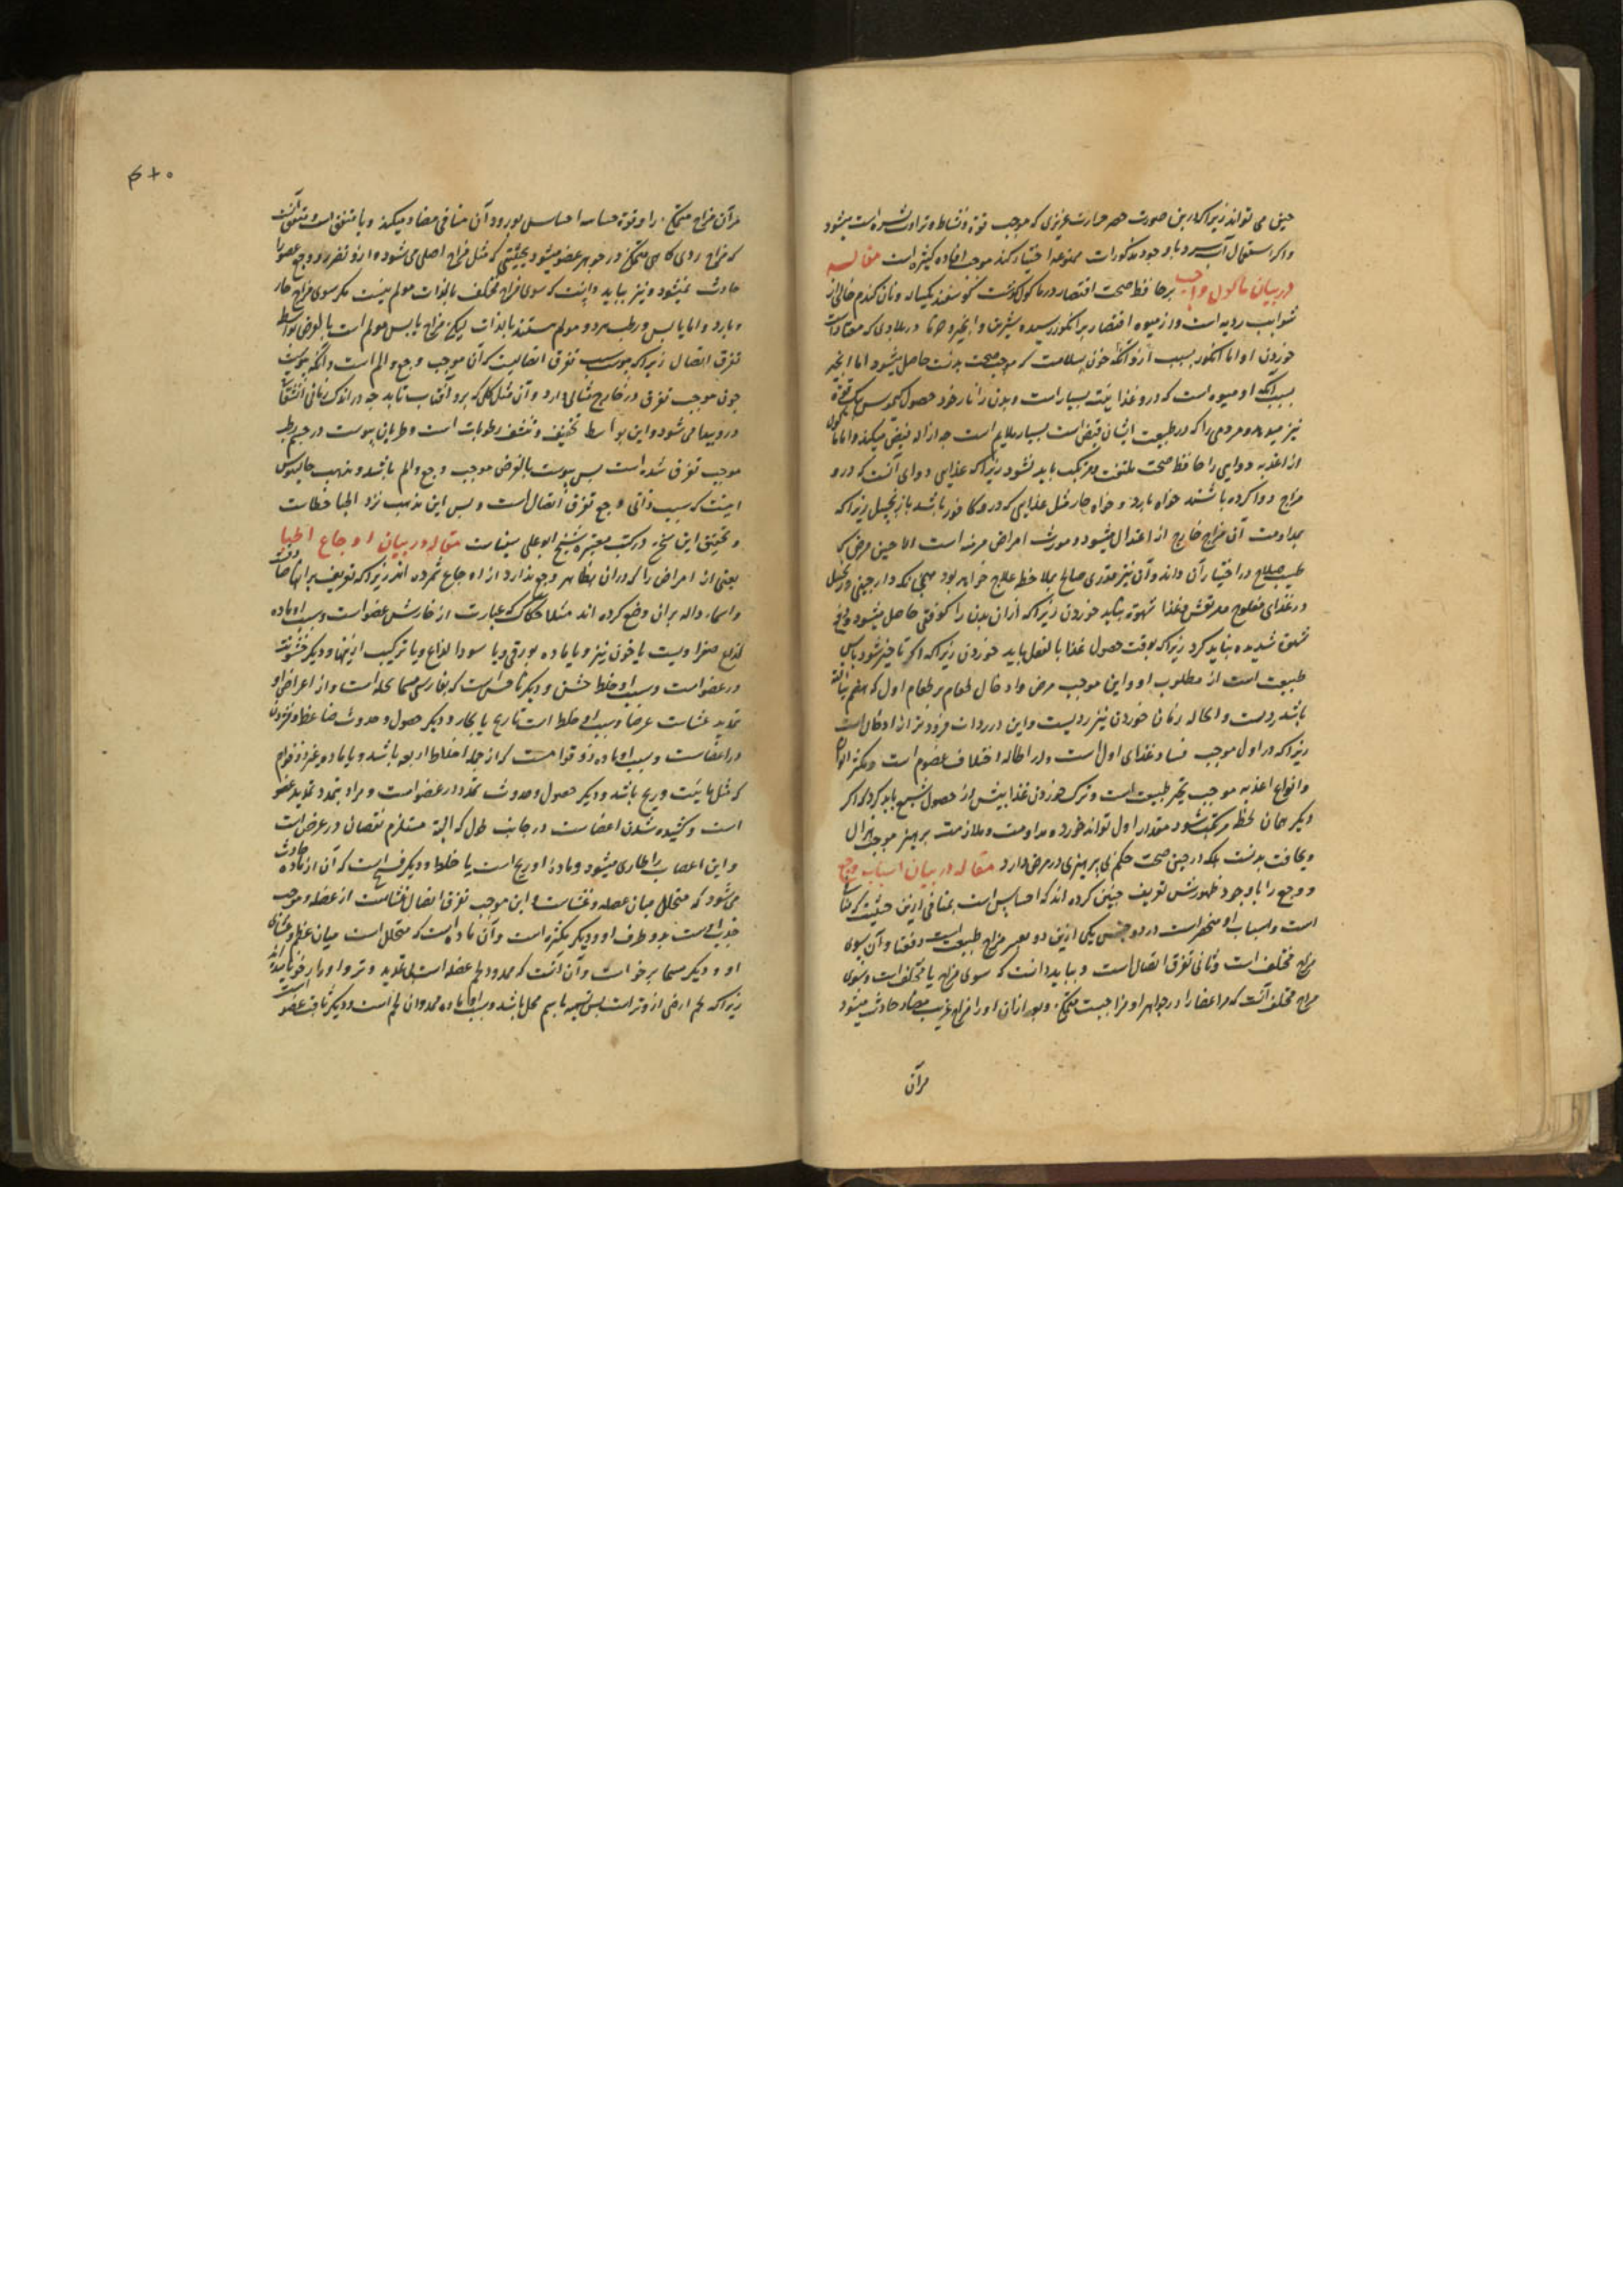 حینی می تواند زیراکه درین صورت حصر حرارت غریزی که موجب قوة و نشاط و تراوت بشره است میشود
واکر استعمال آب سرد با وجود مذکورات ممنوعه اختیار کند موجب افاده کثیره است مقاله
در بیان ماکول واجب بر حافظ صحت اقتصار در ماکول کوشت کوسفند یکساله ونان کندم خالی از
شوایب ردیه است واز میوه اقتصار بر انکور رسیده شیرین وانجیر وخرما در بلادی که معتادست
خوردن او اما انکور بسبب آنکه خون بسلامت که موجب صحت بدنست حاصل میشود اما انجیر
بسبب آنکه او میوه است که درو غذائیت بسیار است وبدن را از خود حصول کیموس نیک قوة
نیز میدهد ومردمی را که در طبیعت ایشان قبض است بسیار ملایم است چه ازاله قبض میکند واما ماکول
از اغذیه دوایی را حافظ صحت ملتفت ومرتکب باید نشود زیراکه غذایی دوای آنست که درو
مزاج دوا کرده باشند خواه بارد وخواه حار مثل غذایی که درو کافور باشد یا زنجبیل زیراکه
بمداومت آن مزاج خارج از اعتدال میشود ومورث امراض مزمنه است اما حین مرض که
طبیب صلاح در اختیار آن داند وآن نیز بقدری صالح بملاحظه علاج خواهد بود همچنانکه دارچینی وزنجبیل
در غذای مفلوج ومرتعش وغذا بشهوة بباید خوردن زیراکه ازان بدن را کوفتی حاصل میشود ودفع
شهوة شدیده نباید کرد زیراکه بوقت حصول غذا بالفعل باید خوردن زیراکه اکر تاخیر شود یاس
طبیعت است از مطلوب او واین موجب مرض وادخال طعام بر طعام اول که هضم نیافته
باشد ردیست واطاله زمان خوردن نیز ردیست واین در ردائت فروتر از ادخال است
زیراکه در اول موجب فساد غذای اول است ودر اطاله اختلاف هضوم است وتکثیر الوان
وانواع اغذیه موجب تحیر طبیعت است وترک خوردن غذا پیش از حصول شبع باید کرد که اکر
دیکر همان لحظه مرتکب شود مقدار اول تواند خورد ومداومت وملازمت پرهیز موجب هزال
ونحافت بدنست بلکه در حین صحت حکم بی پرهیزی در مرض دارد مقاله در بیان اسباب وجع
ووجع را با وجود ظهورش تعریف چنین کرده اند که احساس است بمنافی ازین حیثیت که منافی
است واسباب او منحصر است در دو جنس یکی ازین دو تغیر مزاج طبیعت است دفعتا وآن سوی
مزاج مختلف است وثانی تفرق اتصال است وبباید دانست که سوی مزاج یا مختلف است وسوی
مزاج مختلف آنست که مر اعضا را در جواهر او مزاجیست متمکن وبعد ازان او را مزاج غریب مضاد حادث میشود
مرآن
مرآن مزاج متمکن را وقوة حساسه احساس بورود آن منافی مضاد میکند ویا متفق است ومتفق آنست
که مزاج ردی کائن متمکن در جوهر عضو میشود بحیثیتی که مثل مزاج اصلی می شود وازو تضرر ووجع عضو را
حادث نمیشود ونیز بباید دانست که سوی مزاج مختلف بالذات مولم نیست مکر سوی مزاج حار
وبارد واما یابس ورطب هر دو مولم نیستند بالذات لیکن مزاج یابس مولم است بالعرض بواسطه
تفرق اتصال زیراکه یبوست سبب تفرق اتصالیست که آن موجب وجع والم است وآنکه یبوست
چون موجب تفرق در خارج مثالی دارد وآن مثل کلی که برو آفتاب تابد چه در اندک زمانی انشقاق
درو پیدا می شود واین بواسطه تجفیف ونشف رطوبات است وطریان یبوست در جسم رطب
موجب تفرق شده است پس یبوست بالعرض موجب وجع والم باشد ومذهب جالینوس
اینست که سبب ذاتی وجع تفرق اتصال است وبس این مذهب نزد اطبا خطاست
وتحقیق این سخن در کتب معتبره شیخ ابو علی سیناست مقاله در بیان اوجاع اطبا
بعضی از امراض را که دران بظاهر وجع ندارد از اوجاع شمرده اند زیراکه تعریف برانها صادقست
واسماء داله بران وضع کرده اند مثلا حکاک که عبارت از خارش عضو است وسبب او ماده
لذاع صفراویست یا خون نیز ویا ماده بورقی ویا سودا لذاع ویا ترکیب ازینها ودیکر خشونت
در عضو است وسبب او خلط خشن ودیکر ناخس است که بفارسی مسما بخله است واز اعراض او
تمدید غشاست عرضا وسبب او خلط است تا ریح یا بخار ودیکر حصول وحدوث ضاغط
در اعضاست وسبب او ماده ذو قوامست که از جمله اخلاط اربعه باشد ویا ماده غیر ذو قوام
که مثل مائیت وریح باشد ودیکر حصول وحدوث تمدد در عضو است ومراد بتمدد تمدید عضو
است وکشیده شدن اعضاست در جانب طول که البته مستلزم نقصان در عرض است
واین اعصاب را طاری میشود وماده او ریح است یا خلط ودیکر مفسخ است که آن از ماده حادث
می شود که متخلل میان عضله وغشاست واین موجب تفرق اتصال غشاست از عضله وموجب
جذب است بدو طرف او ودیکر مکسره است وآن ماده است که متخلل است میان عظم وغشای
او ودیکر مسما برخو است وآن آنست که ممدد لحم عضله است بی تمدید وتر واو را رخو نامیده اند
زیراکه لحم ارخی از وتر است پس تسمیه باسم محل باشد وسبب او ماده ممدده آن لحم است ودیکر ثاقب عضو است